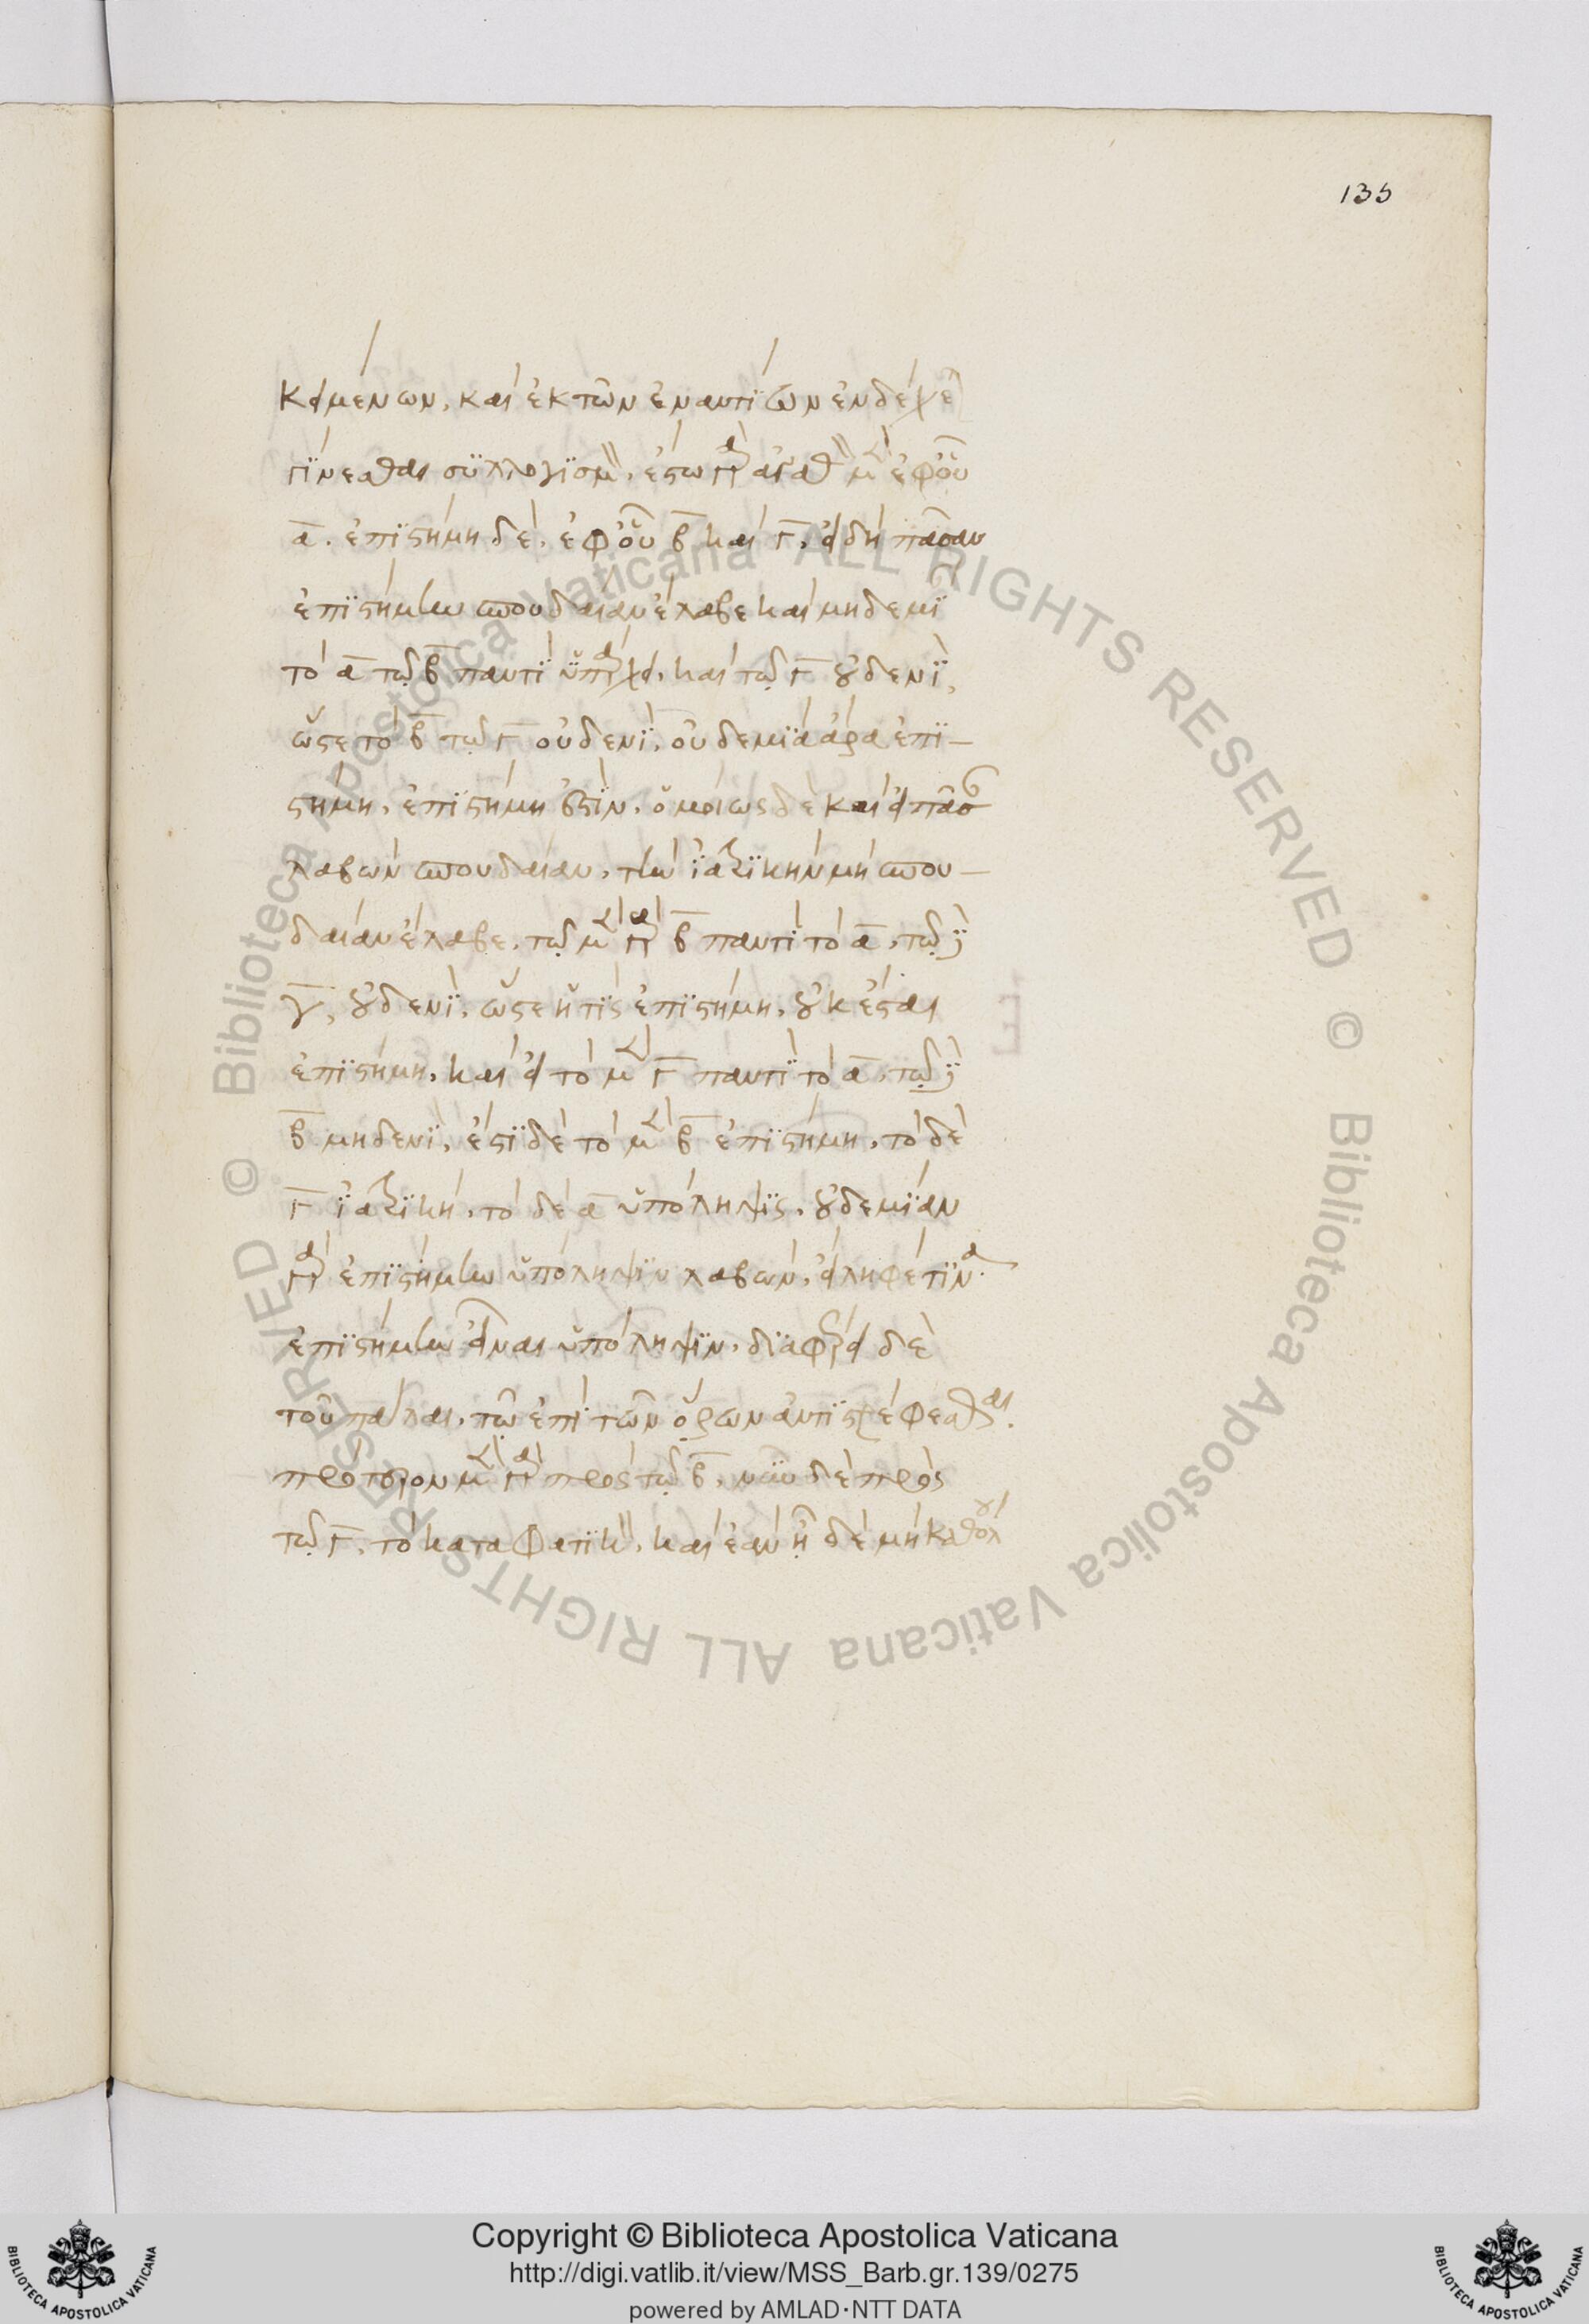 135
κειμένων, καὶ ἐκ τῶν ἐναντίων ἐνδέχε
γίνεσθαι συλλογισμ, ἔστω γὰρ ἀγαθ μὲν ἐφ' οὗ
α. ἐπιστήμη δὲ, ἐφ' οὗ β καὶ γ, εἰ δὴ πᾶσαν
ἐπιστήμην σπουδαίαν ἔλαβε καὶ μηδεμί
τὸ α τῷ β παντὶ ὑπάρχει, καὶ τῷ γ οὐδενὶ,
ὥστε τὸ β τῷ γ οὐδενὶ, οὐδεμία ἄρα ἐπι–
στήμη, ἐπιστήμη ἐστὶν, ὁμοίως δὲ καὶ εἰ πᾶσ
λαβὼν σπουδαίαν, τὴν ἰατρικὴν μὴ σπου–
δαίαν ἔλαβε, τῷ μὲν γὰρ β παντὶ τὸ α, τῷ δὲ
γ, οὐδενὶ, ὥστε ἥ τις ἐπιστήμη, οὐκ ἔσται
ἐπιστήμη, καὶ εἰ τὸ μὲν γ παντὶ τὸ α, τῷ δὲ
β μηδενὶ, ἔστι δὲ τὸ μὲν β ἐπιστήμη, τὸ δὲ
γ ἰατρικὴ, τὸ δὲ α ὑπόληψις, οὐδεμίαν
γὰρ ἐπιστήμην ὑπόληψιν λαβὼν, εἴληφέ τινα
ἐπιστήμην εἶναι ὑπόληψιν, διαφέρει δὲ
τοῦ πάλαι, τῷ ἐπὶ τῶν ὅρων ἀντιστρέφεσθαι.
πρότερον μὲν γὰρ πρὸς τῷ β, νῦν δὲ πρὸς
τῷ γ, τὸ καταφατικ, καὶ ἐὰν ᾖ δὲ μὴ καθόλου
Copyright © Biblioteca Apostolica Vaticana
http://digi.vatlib.it/view/MSS_Barb.gr.139/0275
powered by AMLAD·NTT DATA
BIBLIOTECA APOSTOLICA VATICANA
BIBLIOTECA APOSTOLICA VATICANA
© Biblioteca Apostolica Vaticana ALL RIGHTS RESERVED © Biblioteca Apostolica Vaticana ALL RIGHTS RESERVED